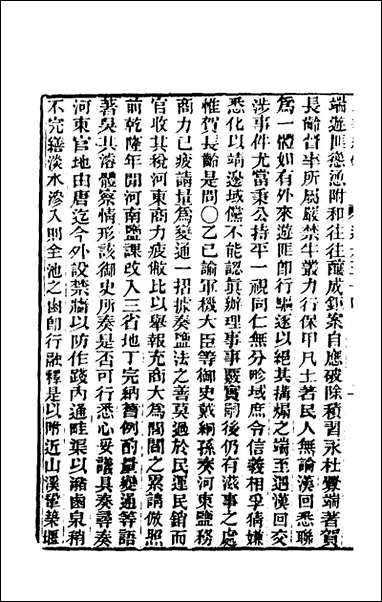 端遊匪慫恿附和往往釀成鉅案自應破除積習永杜釁端著賀
長齡督率所屬嚴禁牛叢力行保甲凡土著民人無論漢回悉聯
為一體如有外來遊匪即行驅逐以絕其搆煽之端至遇漢回交
涉事件尤當秉公持平一視同仁無分畛域庶令信義相孚猜嫌
悉化以靖邊域儻不能認真辦理事事覈實嗣後仍有滋事之處
惟賀長齡是問〇乙巳諭軍機大臣等御史戴絅孫奏河東鹽務
商力已疲請量為變通一摺據奏鹽法之善莫過於民運民銷而
官收其稅河東商力疲敝比以舉報充商大為閭閻之累請倣照
前乾隆年間河南鹽課改入三省地丁完納舊例酌量變通等語
著吳其濬體察情形該御史所奏是否可行悉心妥議具奏尋奏
河東官地由唐迄今外設禁牆以防作踐內通畦渠以瀦鹵泉稍
不完繕淡水滲入則全池之鹵即行融釋是以附近山溪鞏築堰